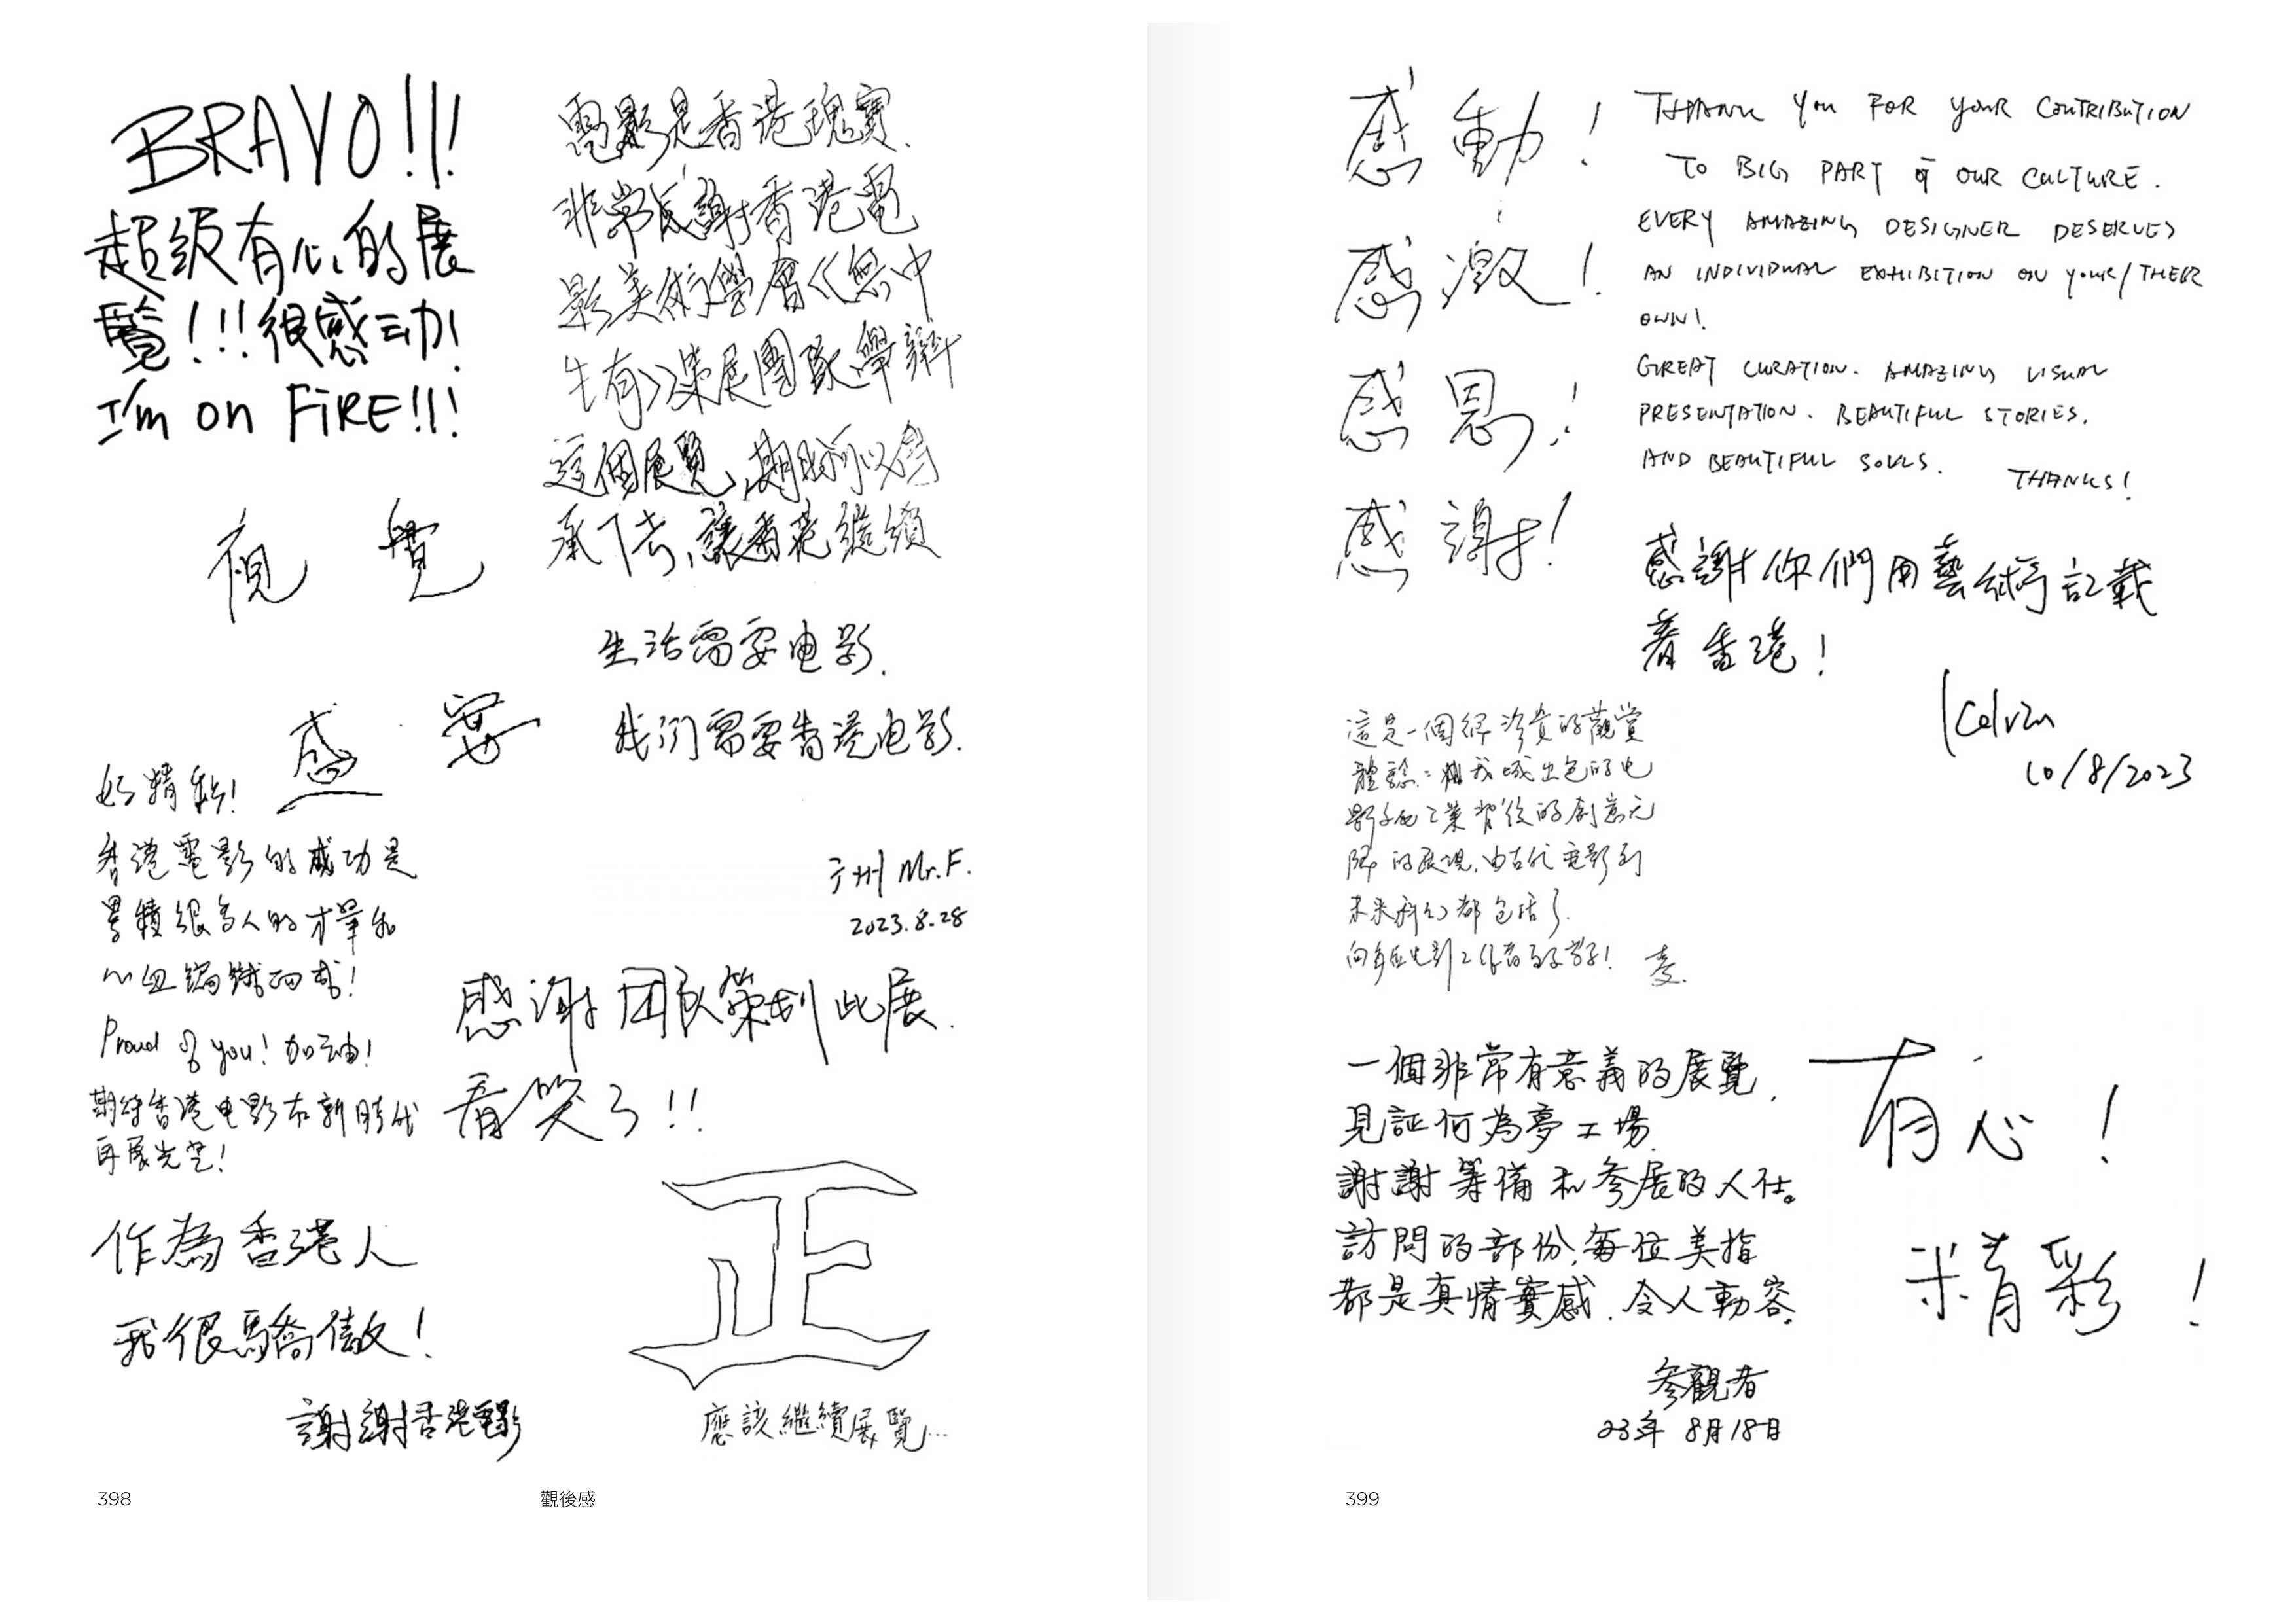 BRAVO!!!
超级有心的展
覽!!!很感动!
I'm on FiRE!!!
電影是香港瑰寶.
非常感謝香港電
影美術學會《無中
生有》策展團隊舉辦
這個展覽,期盼可以傳
承下去,讓香港繼續
視覺
盛宴
生活需要电影.
我们需要香港电影.
广州 Mr.F.
2023.8.28
好精彩!
香港電影的成功是
累積很多人的才華和
心血編織而成!
Proud of you! 加油!
期待香港电影在新時代
再展光芒!
感谢团队策划此展.
看哭了!!
作為香港人
我很驕傲!
謝謝香港電影
正
應該繼續展覽...
398
觀後感
感動!
感激!
感恩!
感謝!
THANK YOU FOR YOUR CONTRIBUTION
TO BIG PART OF OUR CULTURE.
EVERY AMAZING DESIGNER DESERVES
AN INDIVIDUAL EXHIBITION ON YOUR/THEIR
OWN!
GREAT CURATION. AMAZING VISUAL
PRESENTATION. BEAUTIFUL STORIES.
AND BEAUTIFUL SOULS.
THANKS!
感謝你們用藝術記載
著香港!
Kelvin
10/8/2023
這是一個很珍貴的觀賞
體驗:我城出色的电
影工業背後的創意无
限的展現,由古代電影到
未來科幻都包括了.
向每位电影工作者致敬!
麥.
一個非常有意義的展覽,
見証何為夢工場.
謝謝籌備和參展的人仕。
訪問的部份,每位美指
都是真情實感.令人動容.
參觀者
23年 8月18日
有心!
精彩!
399